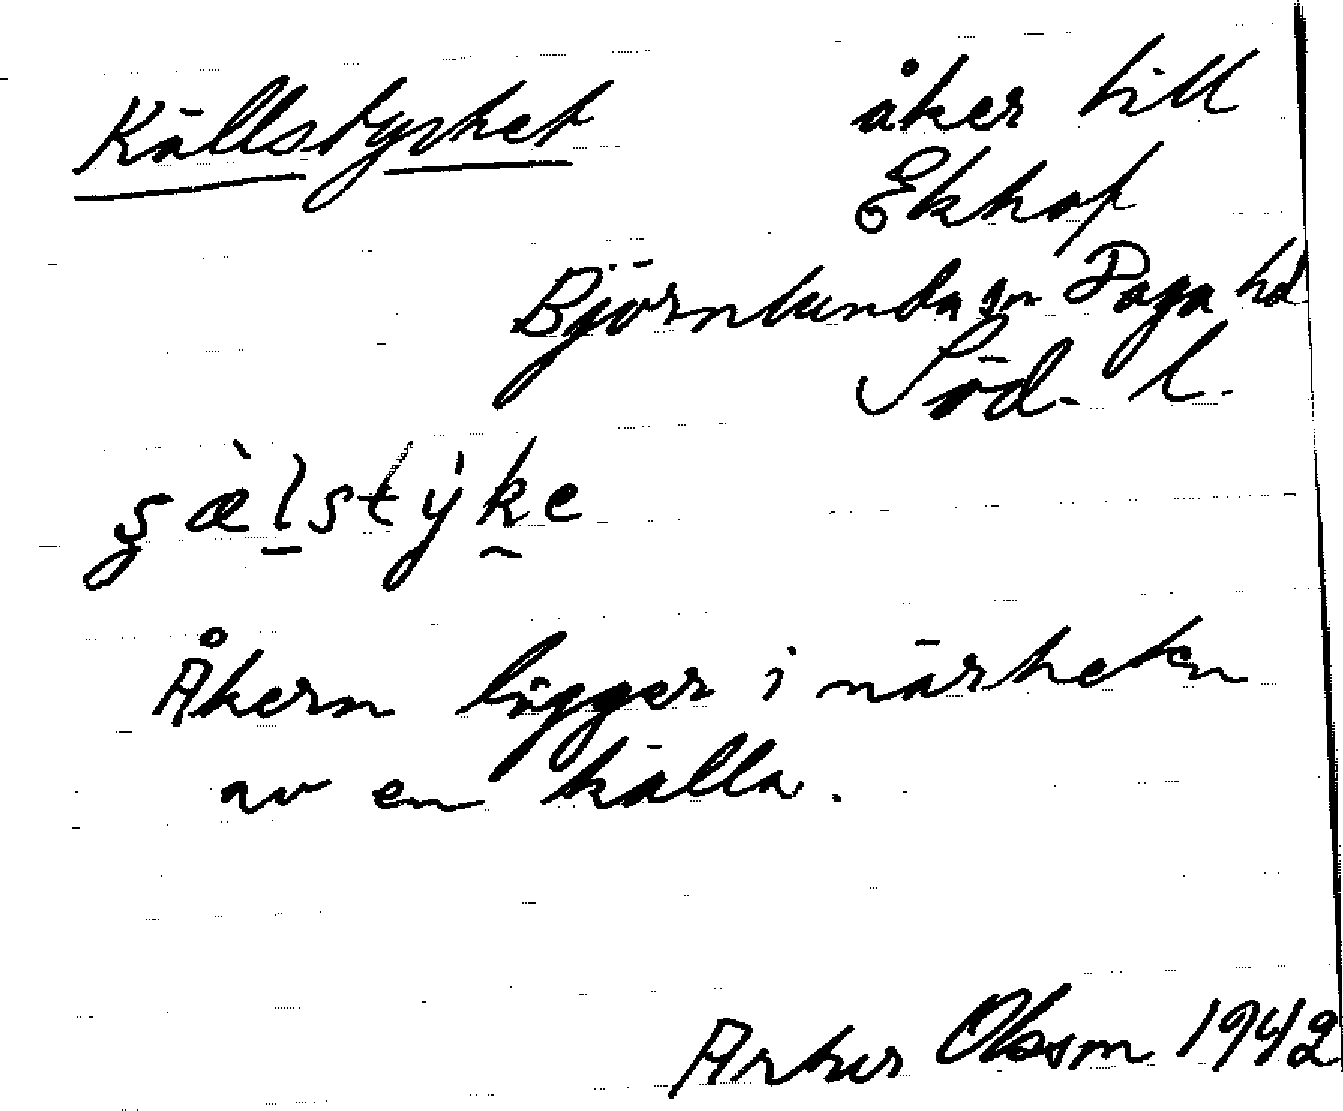 Källstycket åker till
Ekhof
Björnlunda sn Daga hd
Söd. l.
ʂæ̀l̠stýk̯e
Åkern ligger i närheten
av en källa.
Artur Olsson 1942